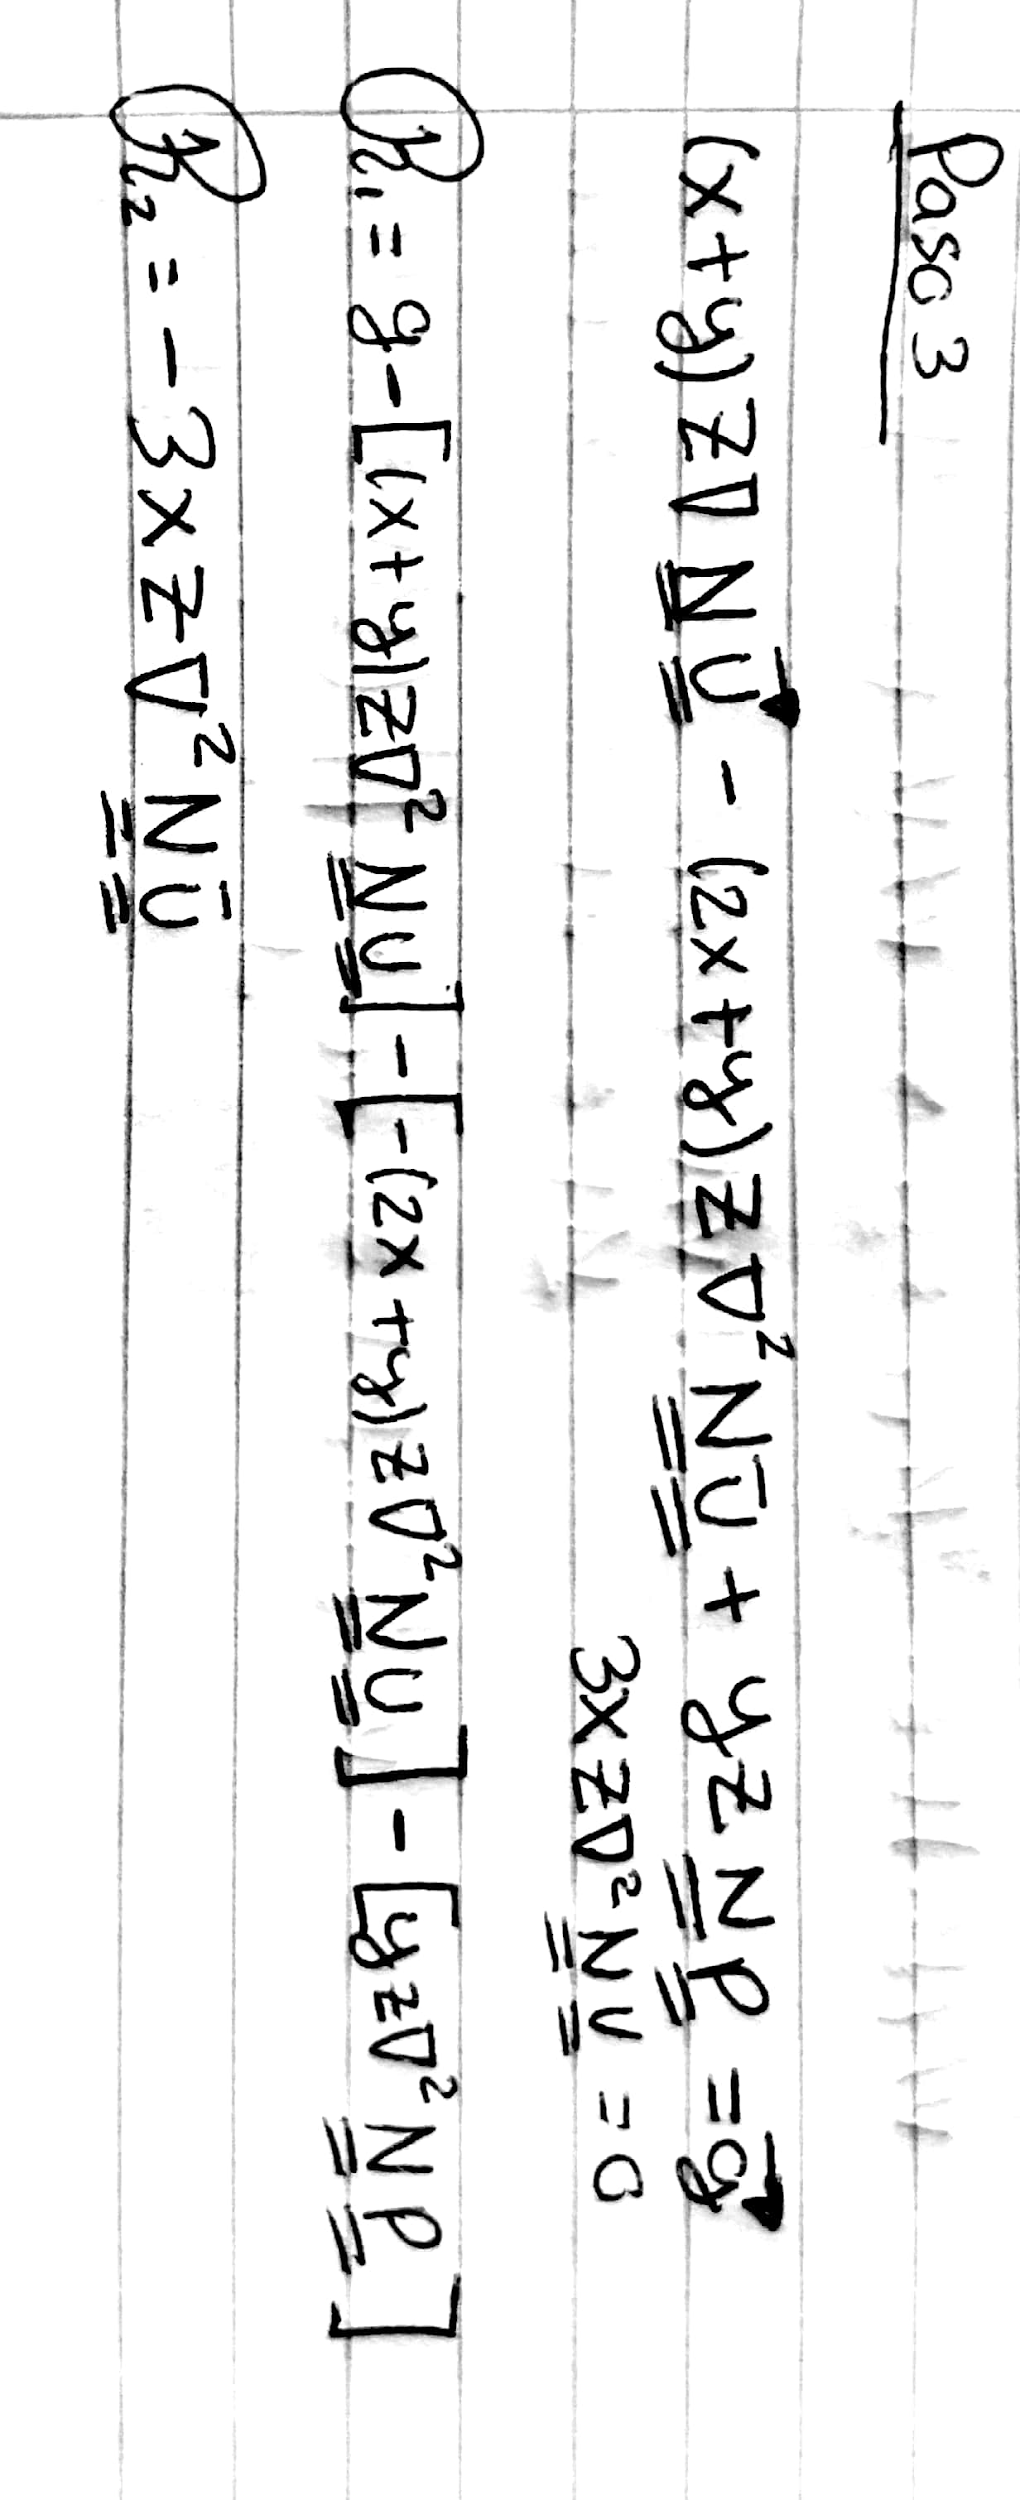 Paso 3
(x+y)z∇N̳U̳⃗ - (2x+y)z∇²N̳U̳̅ + yzN̳P̳ = g⃗
3xz∇²N̳U̳ = 0
R₁ = g - [(x+y)z∇²N̳U̳] - [-(2x+y)z∇²N̳U̳] - [yz∇²N̳P̳]
R₂ = -3xz∇²N̳U̳̅